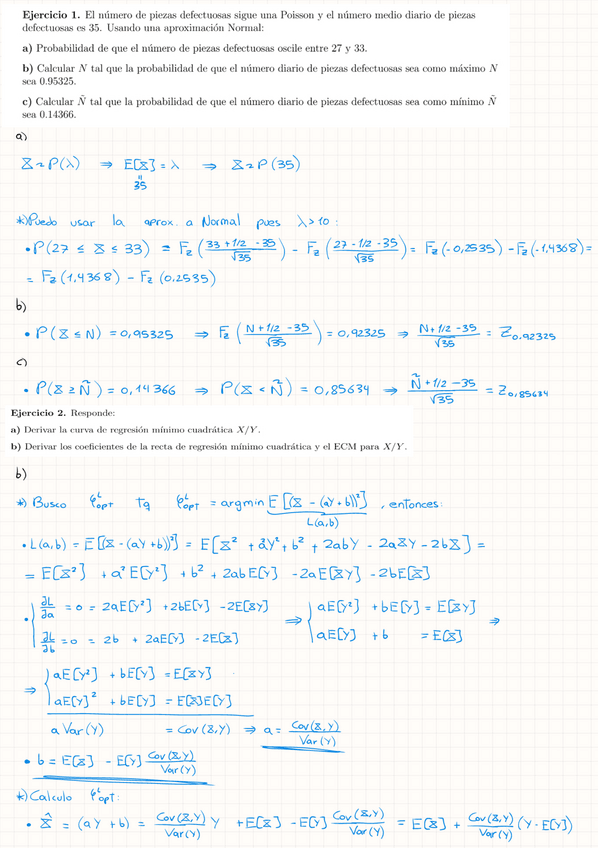 Ejercicio 1. El número de piezas defectuosas sigue una Poisson y el número medio diario de piezas
defectuosas es 35. Usando una aproximación Normal:
a) Probabilidad de que el número de piezas defectuosas oscile entre 27 y 33.
b) Calcular N tal que la probabilidad de que el número diario de piezas defectuosas sea como máximo N
sea 0.95325.
c) Calcular Ñ tal que la probabilidad de que el número diario de piezas defectuosas sea como mínimo Ñ
sea 0.14366.
a)
X ~ P(λ) ⇒ E[X] = λ ⇒ X ~ P(35)
"
35
*) Puedo usar la aprox. a Normal pues λ > 10 :
• P(27 ≤ X ≤ 33) = F_Z((33 + 1/2 - 35)/√35) - F_Z((27 - 1/2 - 35)/√35) = F_Z(-0,2535) - F_Z(-1,4368) =
= F_Z(1,4368) - F_Z(0,2535)
b)
• P(X ≤ N) = 0,95325 ⇒ F_Z((N + 1/2 - 35)/√35) = 0,92325 ⇒ (N + 1/2 - 35)/√35 = Z_0,92325
c)
• P(X ≥ Ñ) = 0,14366 ⇒ P(X < Ñ) = 0,85634 ⇒ (Ñ + 1/2 - 35)/√35 = Z_0,85634
Ejercicio 2. Responde:
a) Derivar la curva de regresión mínimo cuadrática X/Y.
b) Derivar los coeficientes de la recta de regresión mínimo cuadrática y el ECM para X/Y.
b)
*) Busco φ^L_OPT tq φ^L_OPT = argmin E[(X - (aY + b))²] , entonces:
L(a,b)
• L(a,b) = E[(X - (aY + b))²] = E[X² + a²Y² + b² + 2abY - 2aXY - 2bX] =
= E[X²] + a²E[Y²] + b² + 2abE[Y] - 2aE[XY] - 2bE[X]
• { ∂L/∂a = 0 = 2aE[Y²] + 2bE[Y] - 2E[XY] ⇒ { aE[Y²] + bE[Y] = E[XY] ⇒
∂L/∂b = 0 = 2b + 2aE[Y] - 2E[X] aE[Y] + b = E[X]
⇒ { aE[Y²] + bE[Y] = E[XY]
aE[Y]² + bE[Y] = E[X]E[Y]
a Var(Y) = Cov(X,Y) ⇒ a = Cov(X,Y)/Var(Y)
• b = E[X] - E[Y] Cov(X,Y)/Var(Y)
*) Calculo φ^L_opt:
• X̂ = (aY + b) = Cov(X,Y)/Var(Y) Y + E[X] - E[Y] Cov(X,Y)/Var(Y) = E[X] + Cov(X,Y)/Var(Y) (Y - E[Y])